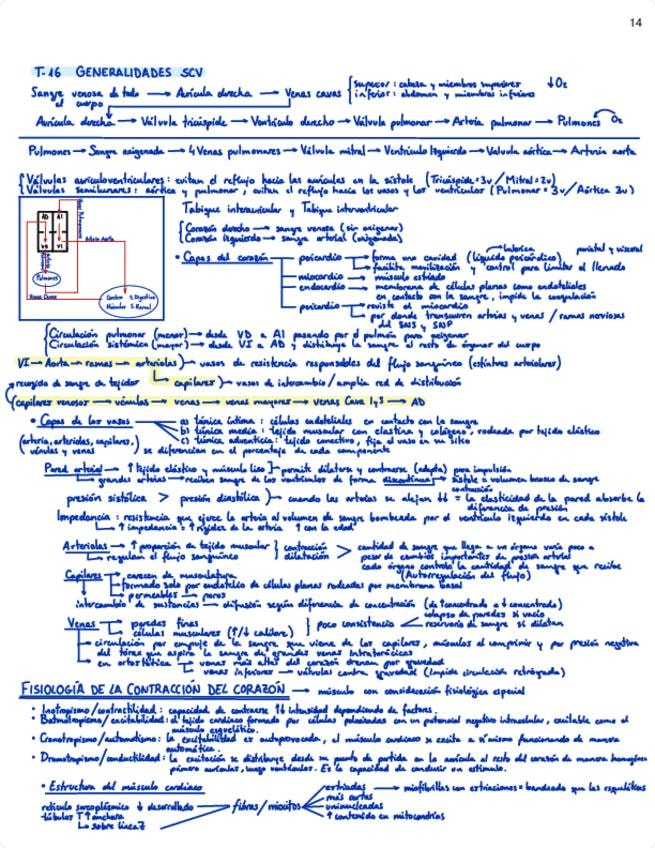 14
T-16 GENERALIDADES SCV
Sangre venosa de todo el cuerpo → Aurícula derecha → Venas cavas { superior: cabeza y miembros superiores ↓O₂
inferior: abdomen y miembros inferiores
Aurícula derecha → Válvula tricúspide → Ventrículo derecho → Válvula pulmonar → Arteria pulmonar → Pulmones O₂
Pulmones → Sangre oxigenada → 4 Venas pulmonares → Válvula mitral → Ventrículo Izquierdo → Válvula aórtica → Arteria aorta
{ Válvulas auriculoventriculares: evitan el reflujo hacia las aurículas en la sístole (Tricúspide=3v/Mitral=2v)
Válvulas semilunares: aórtica y pulmonar, evitan el reflujo hacia los vasos y los ventrículos (Pulmonar=3v/Aórtica 3v)
Tabique interauricular y Tabique interventricular
{ Corazón derecho → sangre venosa (sin oxigenar)
Corazón izquierdo → sangre arterial (oxigenada)
AD AI
VD VI
Arteria Aorta
Pulmones
Venas Cavas
Cerebro S. Digestivo
Músculo S. Renal
• Capas del corazón → pericardio → forma una cavidad (líquido pericárdico) → lubrica parietal y visceral
→ facilita movilización y control para limitar el llenado
miocardio → músculo estriado
endocardio → membrana de células planas como endoteliales
en contacto con la sangre, impide la coagulación
pericardio → reviste al miocardio
→ por donde transcurren arterias y venas / ramas nerviosas
del SNS y SNP
{ Circulación pulmonar (menor) → desde VD a AI pasando por el pulmón para oxigenar
Circulación sistémica (mayor) → desde VI a AD y distribuye la sangre al resto de órganos del cuerpo
VI → Aorta → ramas → arteriolas) → vasos de resistencia responsables del flujo sanguíneo (esfínteres arteriolares)
recogida de sangre de tejidos → capilares) → vasos de intercambio/amplia red de distribución
(capilares venosos → vénulas → venas → venas mayores → venas Cava I y S → AD
• Capas de los vasos → a) túnica íntima: células endoteliales en contacto con la sangre
(arteria, arteriolas, capilares, vénulas y venas) b) túnica media: tejido muscular con elastina y colágeno, rodeada por tejido elástico
c) túnica adventicia: tejido conectivo, fija el vaso en su sitio
se diferencian en el porcentaje de cada componente
Pared arterial → ↑ tejido elástico y músculo liso ] → permite dilatarse y contraerse (adapta) para impulsión
→ grandes arterias → reciben sangre de los ventrículos de forma discontinua → sístole = volumen brusco de sangre
contracción
presión sistólica > presión diastólica) → cuando las arterias se alejan ↓↓ = la elasticidad de la pared absorbe la
diferencia de presión
Impedancia: resistencia que ejerce la arteria al volumen de sangre bombeada por el ventrículo izquierdo en cada sístole
→ ↑ impedancia: ↑ rigidez de la arteria ↑ con la edad
Arteriolas → ↑ proporción de tejido muscular } contracción dilatación > cantidad de sangre que llega a un órgano varía poco a
→ regulan el flujo sanguíneo pesar de cambios importantes de presión arterial
cada órgano controla la cantidad de sangre que recibe
(Autorregulación del flujo)
Capilares → carecen de musculatura
→ formado solo por endotelio de células planas rodeadas por membrana basal
→ permeables → poros
intercambio de sustancias → difusión según diferencia de concentración (de ↑concentrado a ↓concentrado)
Venas → paredes finas } poco consistencia < colapso de paredes si vacío
→ células musculares (↑/↓ calibre) reservorio de sangre si dilatan
→ circulación por empuje de la sangre que viene de los capilares, músculos al comprimir y por presión negativa
del tórax que aspira la sangre de grandes venas intratorácicas
→ en ortostática → venas más altas del corazón drenan por gravedad
→ venas inferiores → válvulas contra gravedad (impide circulación retrógrada)
FISIOLOGÍA DE LA CONTRACCIÓN DEL CORAZÓN → músculo con consideración fisiológica especial
• Inotropismo/contractilidad: capacidad de contraerse ↑↓ intensidad dependiendo de factores.
• Batmotropismo/excitabilidad: el tejido cardíaco formado por células polarizadas con un potencial negativo intracelular, excitable como el
músculo esquelético.
• Cronotropismo/automatismo: la excitabilidad es autoprovocada, el músculo cardíaco se excita a sí mismo funcionando de manera
automática.
• Dromotropismo/conductilidad: la excitación se distribuye desde su punto de partida en la aurícula al resto del corazón de manera homogénea
primero aurículas, luego ventrículos. Es la capacidad de conducir un estímulo.
• Estructura del músculo cardíaco
retículo sarcoplásmico ↓ desarrollado
túbulos T ↑ anchura
→ sobre línea Z
fibras/miocitos
estriadas → miofibrillas con estriaciones = bandeado que las esqueléticas
más cortas
uninucleadas
↑ contenido en mitocondrias